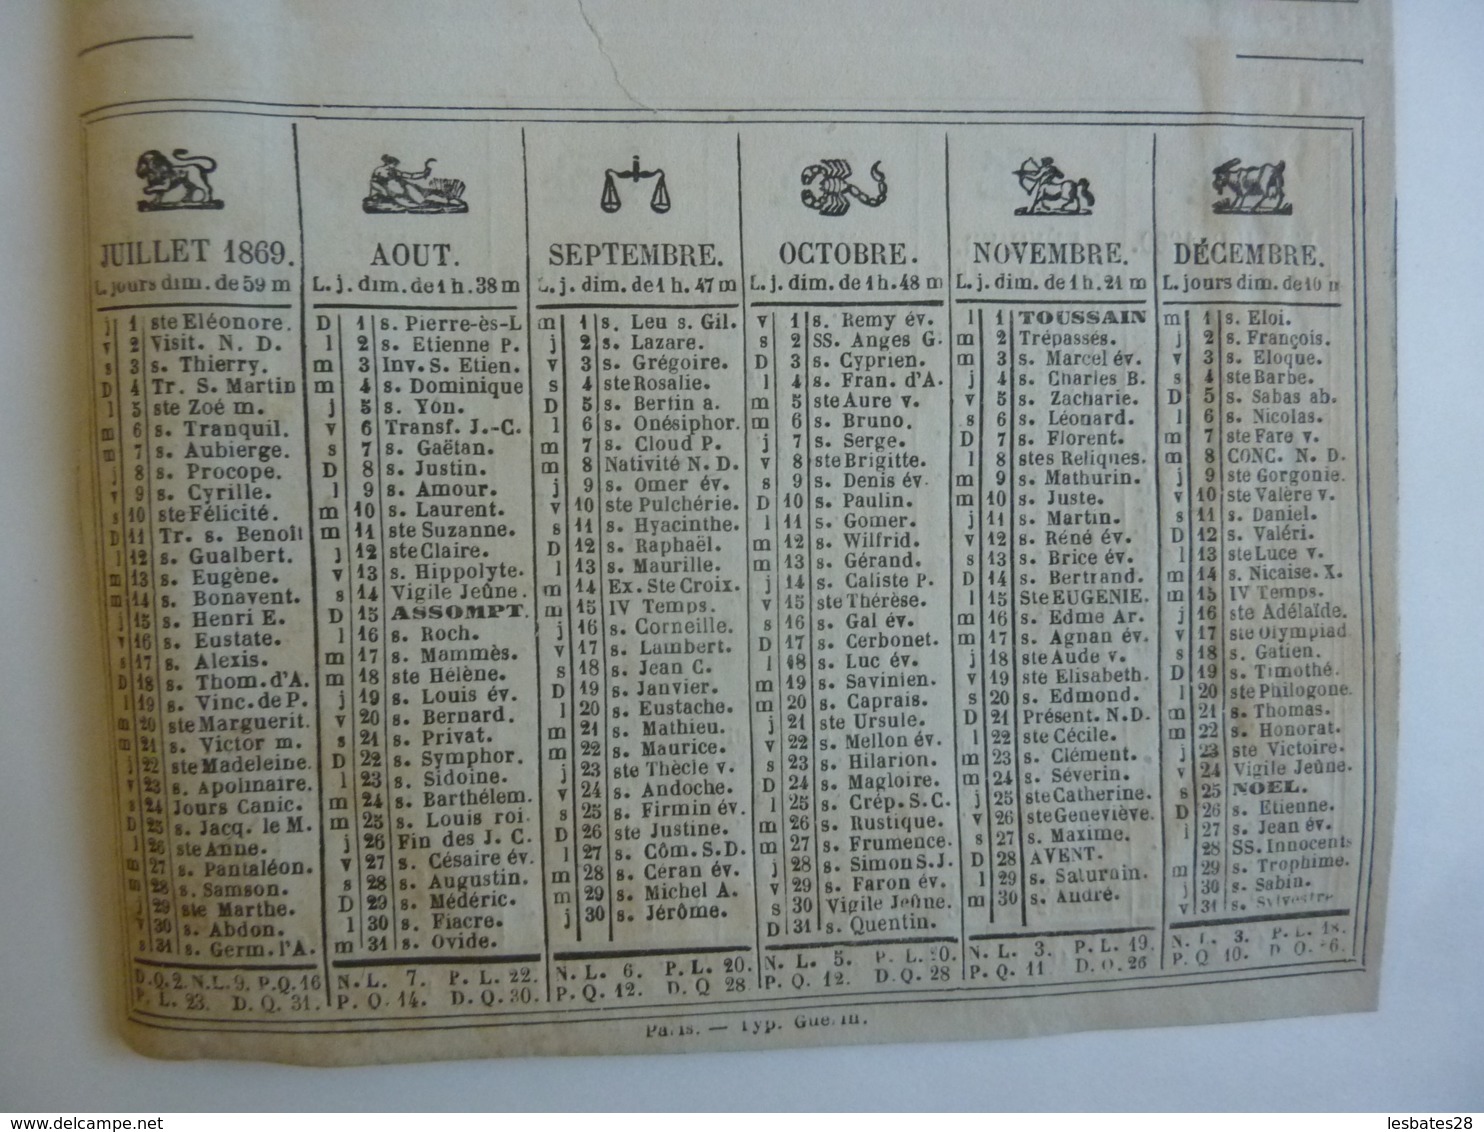 JUILLET 1869.
L. jours dim. de 59 m
j 1 ste Eléonore.
v 2 Visit. N. D.
s 3 s. Thierry.
D 4 Tr. S. Martin
l 5 ste Zoé m.
m 6 s. Tranquil.
m 7 s. Aubierge.
j 8 s. Procope.
v 9 s. Cyrille.
s 10 ste Félicité.
D 11 Tr. s. Benoît
l 12 s. Gualbert.
m 13 s. Eugène.
m 14 s. Bonavent.
j 15 s. Henri E.
v 16 s. Eustate.
s 17 s. Alexis.
D 18 s. Thom. d'A.
l 19 s. Vinc. de P.
m 20 ste Marguerit.
m 21 s. Victor m.
j 22 ste Madeleine.
v 23 s. Apolinaire.
s 24 Jours Canic.
D 25 s. Jacq. le M.
l 26 ste Anne.
m 27 s. Pantaléon.
m 28 s. Samson.
j 29 ste Marthe.
v 30 s. Abdon.
s 31 s. Germ. l'A.
D. Q. 2. N. L. 9. P. Q. 16
P. L. 23. D. Q. 31.
AOUT.
L. j. dim. de 1 h. 38 m
D 1 s. Pierre-ès-L
l 2 s. Etienne P.
m 3 Inv. S. Etien.
m 4 s. Dominique
j 5 s. Yon.
v 6 Transf. J.-C.
s 7 s. Gaëtan.
D 8 s. Justin.
l 9 s. Amour.
m 10 s. Laurent.
m 11 ste Suzanne.
j 12 ste Claire.
v 13 s. Hippolyte.
s 14 Vigile Jeûne.
D 15 ASSOMPT.
l 16 s. Roch.
m 17 s. Mammès.
m 18 ste Hélène.
j 19 s. Louis év.
v 20 s. Bernard.
s 21 s. Privat.
D 22 s. Symphor.
l 23 s. Sidoine.
m 24 s. Barthélem.
m 25 s. Louis roi.
j 26 Fin des J. C.
v 27 s. Césaire év.
s 28 s. Augustin.
D 29 s. Médéric.
l 30 s. Fiacre.
m 31 s. Ovide.
N. L. 7. P. L. 22.
P. Q. 14. D. Q. 30.
SEPTEMBRE.
L. j. dim. de 1 h. 47 m
m 1 s. Leu s. Gil.
j 2 s. Lazare.
v 3 s. Grégoire.
s 4 ste Rosalie.
D 5 s. Bertin a.
l 6 s. Onésiphor.
m 7 s. Cloud P.
m 8 Nativité N. D.
j 9 s. Omer év.
v 10 ste Pulchérie.
s 11 s. Hyacinthe.
D 12 s. Raphaël.
l 13 s. Maurille.
m 14 Ex. Ste Croix.
m 15 IV Temps.
j 16 s. Corneille.
v 17 s. Lambert.
s 18 s. Jean C.
D 19 s. Janvier.
l 20 s. Eustache.
m 21 s. Mathieu.
m 22 s. Maurice.
j 23 ste Thècle v.
v 24 s. Andoche.
s 25 s. Firmin év.
D 26 ste Justine.
l 27 s. Côm. S. D.
m 28 s. Céran év.
m 29 s. Michel A.
j 30 s. Jérôme.
N. L. 6. P. L. 20.
P. Q. 12. D. Q 28.
OCTOBRE.
L. j. dim. de 1 h. 48 m
v 1 s. Remy év.
s 2 SS. Anges G.
D 3 s. Cyprien.
l 4 s. Fran. d'A.
m 5 ste Aure v.
m 6 s. Bruno.
j 7 s. Serge.
v 8 ste Brigitte.
s 9 s. Denis év.
D 10 s. Paulin.
l 11 s. Gomer.
m 12 s. Wilfrid.
m 13 s. Gérand.
j 14 s. Caliste P.
v 15 ste Thérèse.
s 16 s. Gal év.
D 17 s. Cerbonet.
l 18 s. Luc év.
m 19 s. Savinien.
m 20 s. Caprais.
j 21 ste Ursule.
v 22 s. Mellon év.
s 23 s. Hilarion.
D 24 s. Magloire.
l 25 s. Crép. S. C.
m 26 s. Rustique.
m 27 s. Frumence.
j 28 s. Simon S. J.
v 29 s. Faron év.
s 30 Vigile Jeûne.
D 31 s. Quentin.
N. L. 5. P. L. 20.
P. Q. 12. D. Q. 28
NOVEMBRE.
L. j. dim. de 1 h. 21 m
l 1 TOUSSAIN
m 2 Trépassés.
m 3 s. Marcel év.
j 4 s. Charles B.
v 5 s. Zacharie.
s 6 s. Léonard.
D 7 s. Florent.
l 8 stes Reliques.
m 9 s. Mathurin.
m 10 s. Juste.
j 11 s. Martin.
v 12 s. Réné év.
s 13 s. Brice év.
D 14 s. Bertrand.
l 15 Ste EUGENIE.
m 16 s. Edme Ar.
m 17 s. Agnan év.
j 18 ste Aude v.
v 19 ste Elisabeth.
s 20 s. Edmond.
D 21 Présent. N. D.
l 22 ste Cécile.
m 23 s. Clément.
m 24 s. Séverin.
j 25 ste Catherine.
v 26 ste Geneviève.
s 27 s. Maxime.
D 28 AVENT.
l 29 s. Saturnin.
m 30 s. André.
N. L. 3. P. L. 19.
P. Q. 11 D. Q. 26
DÉCEMBRE.
L. jours dim. de 16 m
m 1 s. Eloi.
j 2 s. François.
v 3 s. Eloque.
s 4 ste Barbe.
D 5 s. Sabas ab.
l 6 s. Nicolas.
m 7 ste Fare v.
m 8 CONC. N. D.
j 9 ste Gorgonie.
v 10 ste Valère v.
s 11 s. Daniel.
D 12 s. Valéri.
l 13 ste Luce v.
m 14 s. Nicaise. X.
m 15 IV Temps.
j 16 ste Adélaïde.
v 17 ste Olympiad
s 18 s. Gatien.
D 19 s. Timothé.
l 20 ste Philogone.
m 21 s. Thomas.
m 22 s. Honorat.
j 23 ste Victoire.
v 24 Vigile Jeûne.
s 25 NOEL.
D 26 s. Etienne.
l 27 s. Jean év.
28 SS. Innocents
m 29 s. Trophime.
j 30 s. Sabin.
v 31 s. Sylvestre
N. L. 3. P. L. 18.
P. Q 10. D. Q.
Paris. — Typ. Guérin.
www.delcampe.net
lesbates28